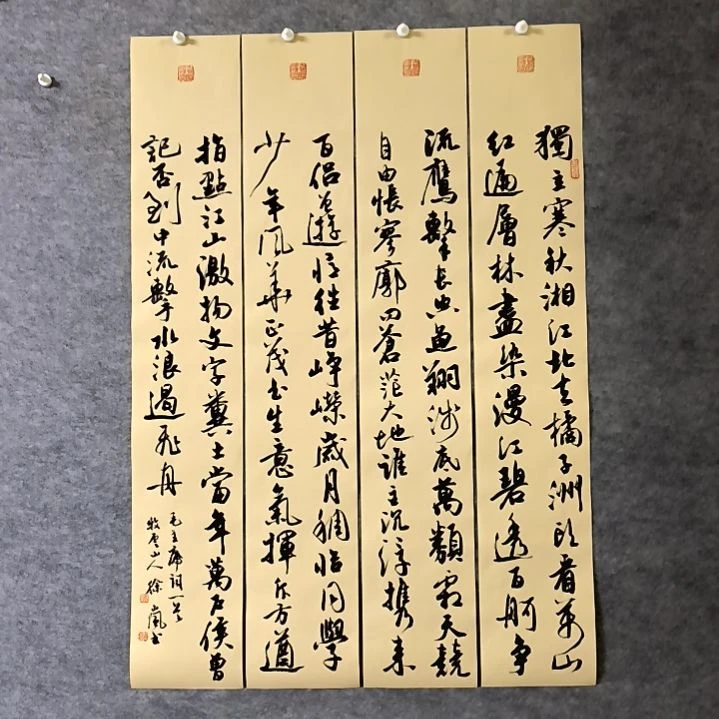 獨立寒秋湘江北去橘子洲頭看萬山
紅遍層林盡染漫江碧透百舸爭
流鷹擊長空魚翔淺底萬類霜天競
自由悵寥廓問蒼茫大地誰主沉浮携來
百侶曾遊憶往昔崢嶸歲月稠恰同學
少年風華正茂書生意氣揮斥方遒
指點江山激揚文字糞土當年萬戶侯曾
記否到中流擊水浪遏飛舟
毛主席詞一首
牧雲山人徐嵐書